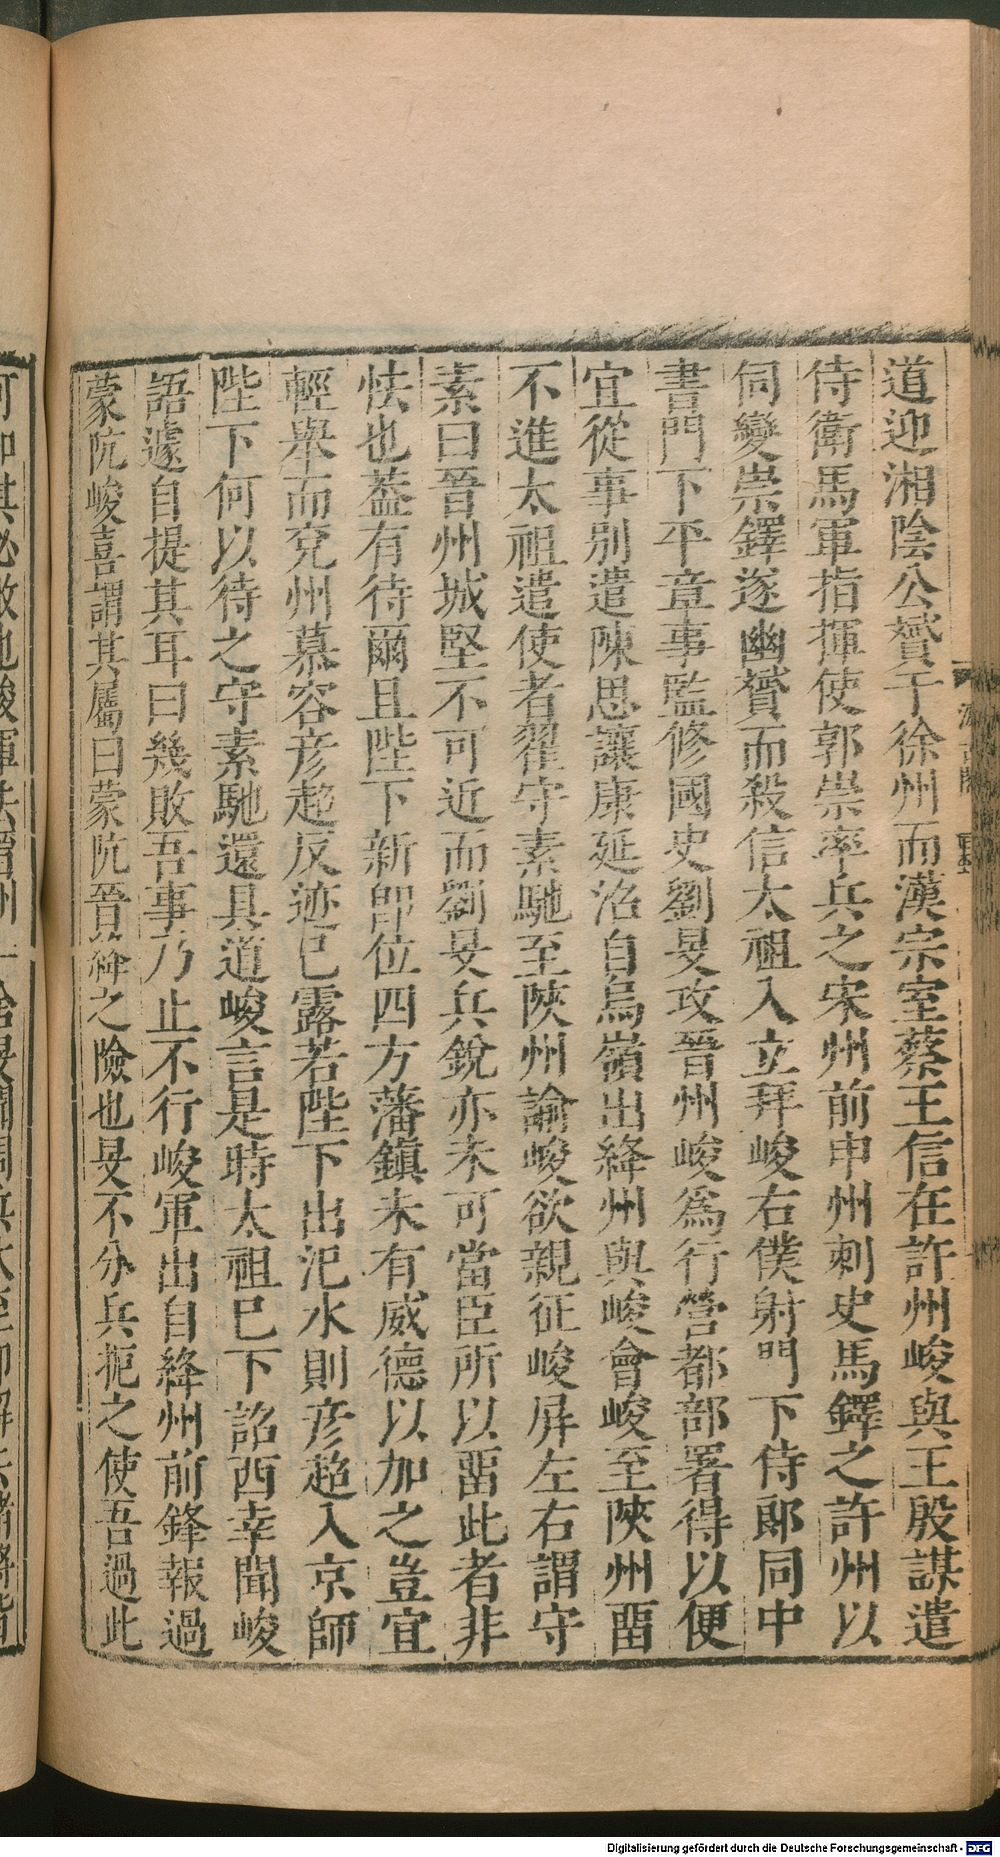 道迎湘陰公贇于徐州而漢宗室蔡王信在許州峻與王殷謀遣
侍衛馬軍指揮使郭崇率兵之宋州前申州刺史馬鐸之許州以
伺變崇鐸遂幽贇而殺信太祖入立拜峻右僕射門下侍郎同中
書門下平章事監修國史劉旻攻晉州峻為行營都部署得以便
宜從事別遣陳思讓康延沼自烏嶺出絳州與峻會峻至陝州畱
不進太祖遣使者翟守素馳至陝州諭峻欲親征峻屏左右謂守
素曰晉州城堅不可近而劉旻兵銳亦未可當臣所以畱此者非
怯也蓋有待爾且陛下新卽位四方藩鎮未有威德以加之豈宜
輕舉而兗州慕容彥超反迹已露若陛下出汜水則彥超入京師
陛下何以待之守素馳還具道峻言是時太祖已下詔西幸聞峻
語遽自提其耳曰幾敗吾事乃止不行峻軍出自絳州前鋒報過
蒙阬峻喜謂其屬曰蒙阬晉絳之險也旻不分兵扼之使吾過此
Digitalisierung gefördert durch die Deutsche Forschungsgemeinschaft - DFG